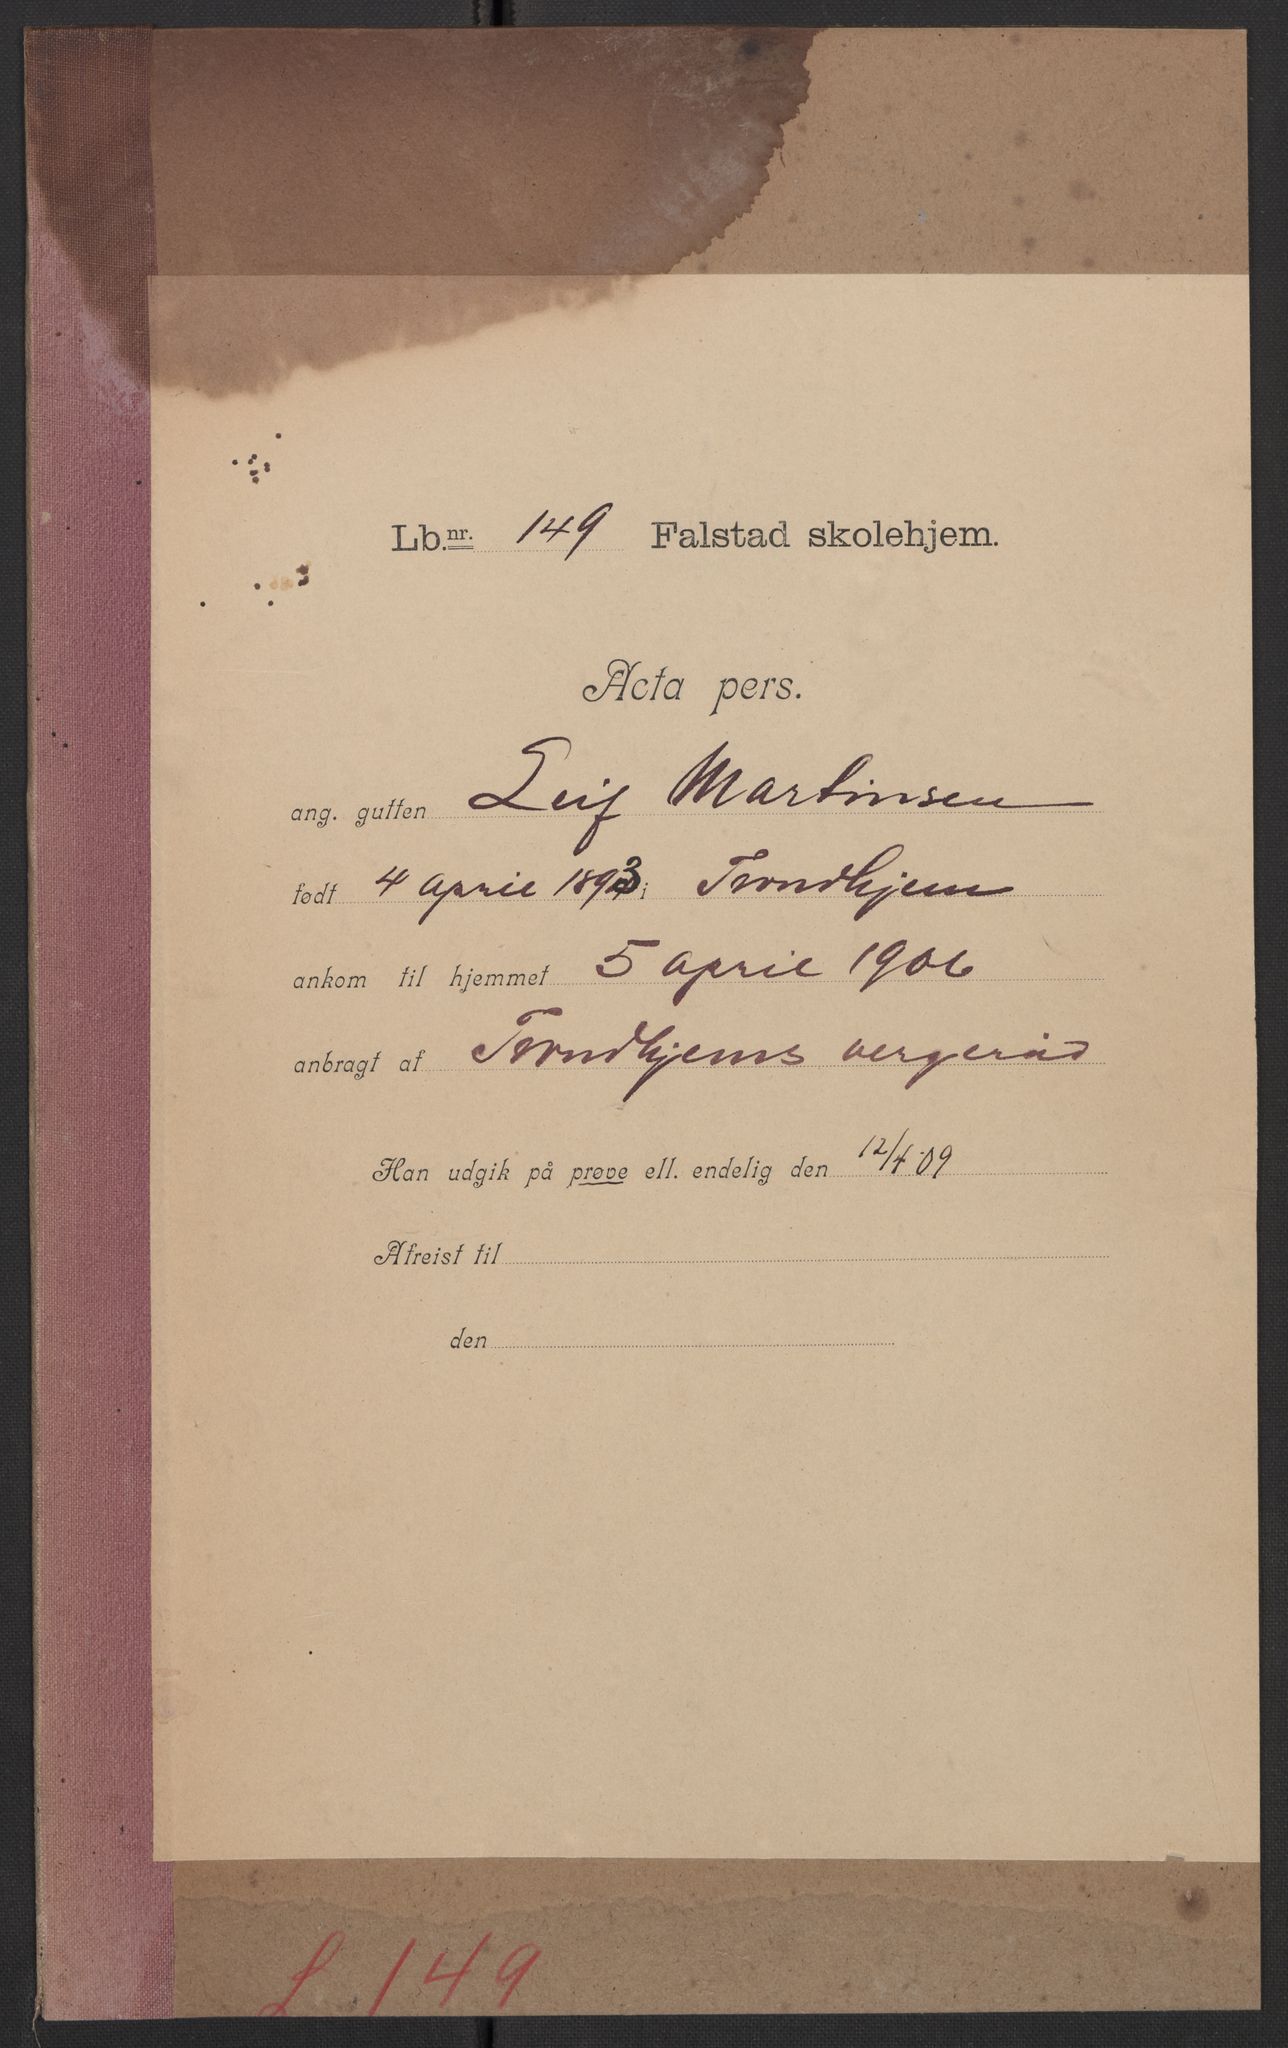 Lb.nr. 149 Falstad skolehjem.
Acta pers.
ang. gutten Leif Martinsen
født 4 april 1893 i Trondhjem
ankom til hjemmet 5 april 1906
anbragt af Trondhjems vergeråd
Han udgik på prøve ell. endelig den 12/4-09
Afreist til
den
L. 149